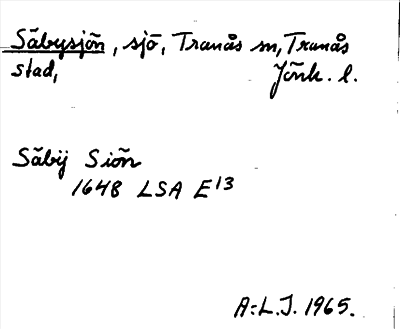 Säbysjön, sjö, Tranås sn, Tranås
stad, Jönk. l.
Säbÿ Siön
1648 LSA E13
A:L.J. 1965.